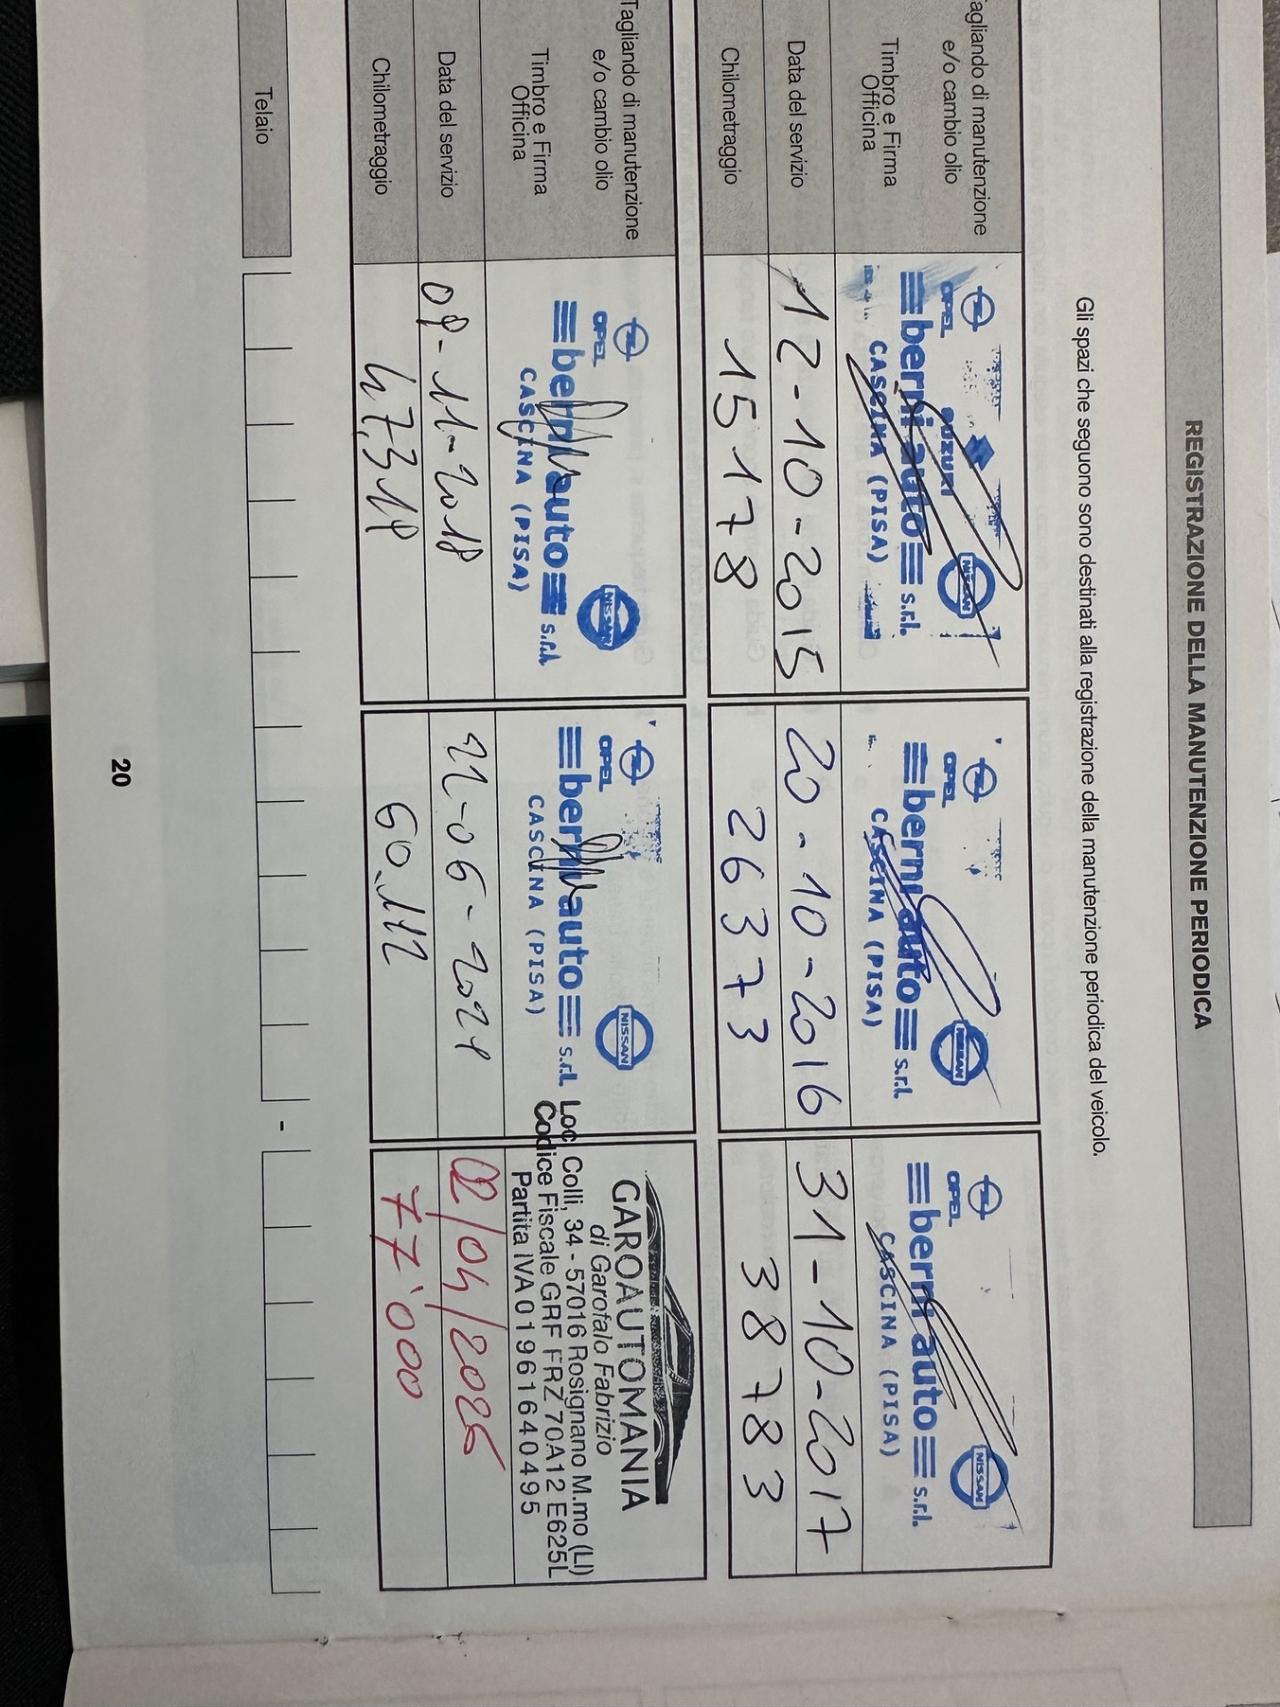 REGISTRAZIONE DELLA MANUTENZIONE PERIODICA
Gli spazi che seguono sono destinati alla registrazione della manutenzione periodica del veicolo.
Tagliando di manutenzione
e/o cambio olio
Timbro e Firma
Officina
OPEL
SUZUKI
NISSAN
berni auto s.r.l.
CASCINA (PISA)
OPEL
NISSAN
berni auto s.r.l.
CASCINA (PISA)
OPEL
NISSAN
berni auto s.r.l.
CASCINA (PISA)
Data del servizio
12-10-2015
20-10-2016
31-10-2017
Chilometraggio
15178
26373
38783
Tagliando di manutenzione
e/o cambio olio
Timbro e Firma
Officina
OPEL
NISSAN
berni auto s.r.l.
CASCINA (PISA)
OPEL
NISSAN
berni auto s.r.l.
CASCINA (PISA)
GAROAUTOMANIA
di Garofalo Fabrizio
Loc. Colli, 34 - 57016 Rosignano M.mo (LI)
Codice Fiscale GRF FRZ 70A12 E625L
Partita IVA 01961640495
Data del servizio
-11-2018
-06-2021
02/04/2025
Chilometraggio
60.112
77'000
Telaio
-
20